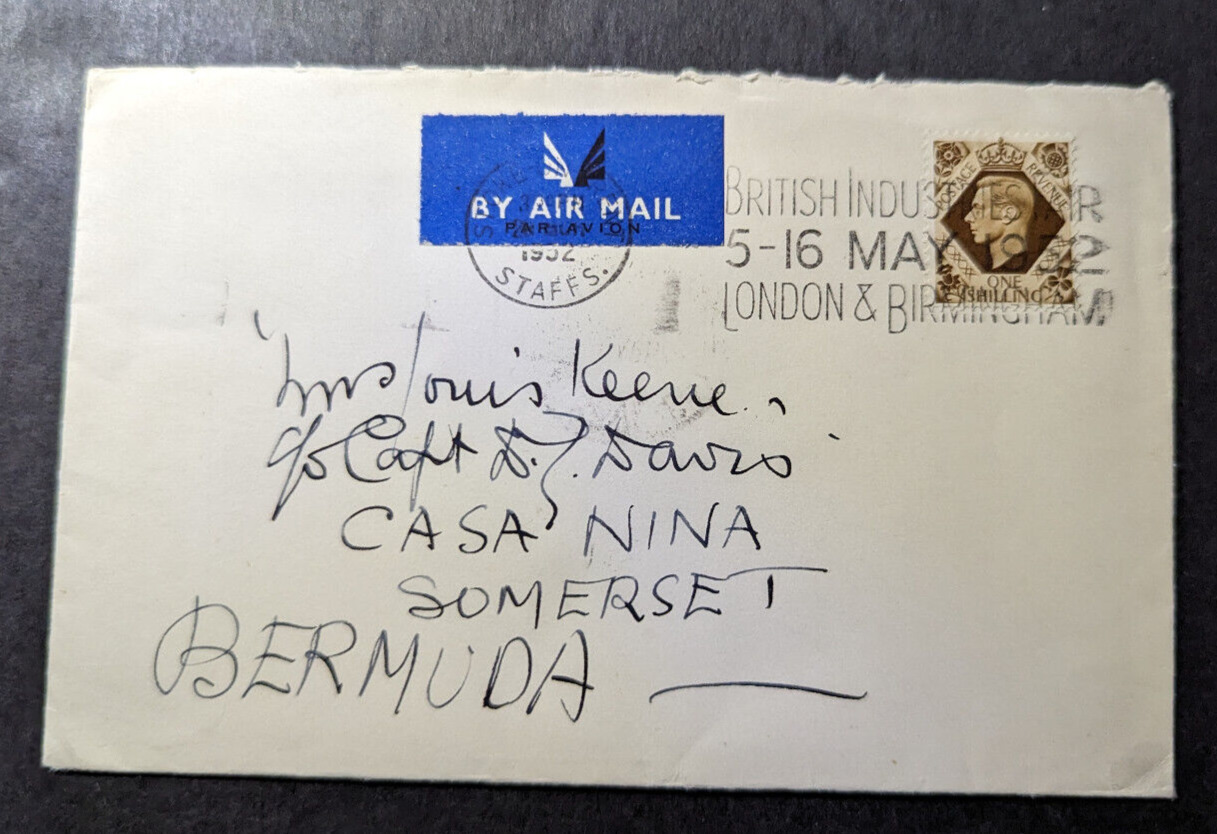 BY AIR MAIL
PAR AVION
1952
STAFFS.
BRITISH INDUSTRIES FAIR
5-16 MAY 1952
LONDON & BIRMINGHAM
POSTAGE REVENUE
ONE
SHILLING
Mrs Louis Keene.
c/o Capt D. J. Davis
CASA NINA
SOMERSET
BERMUDA